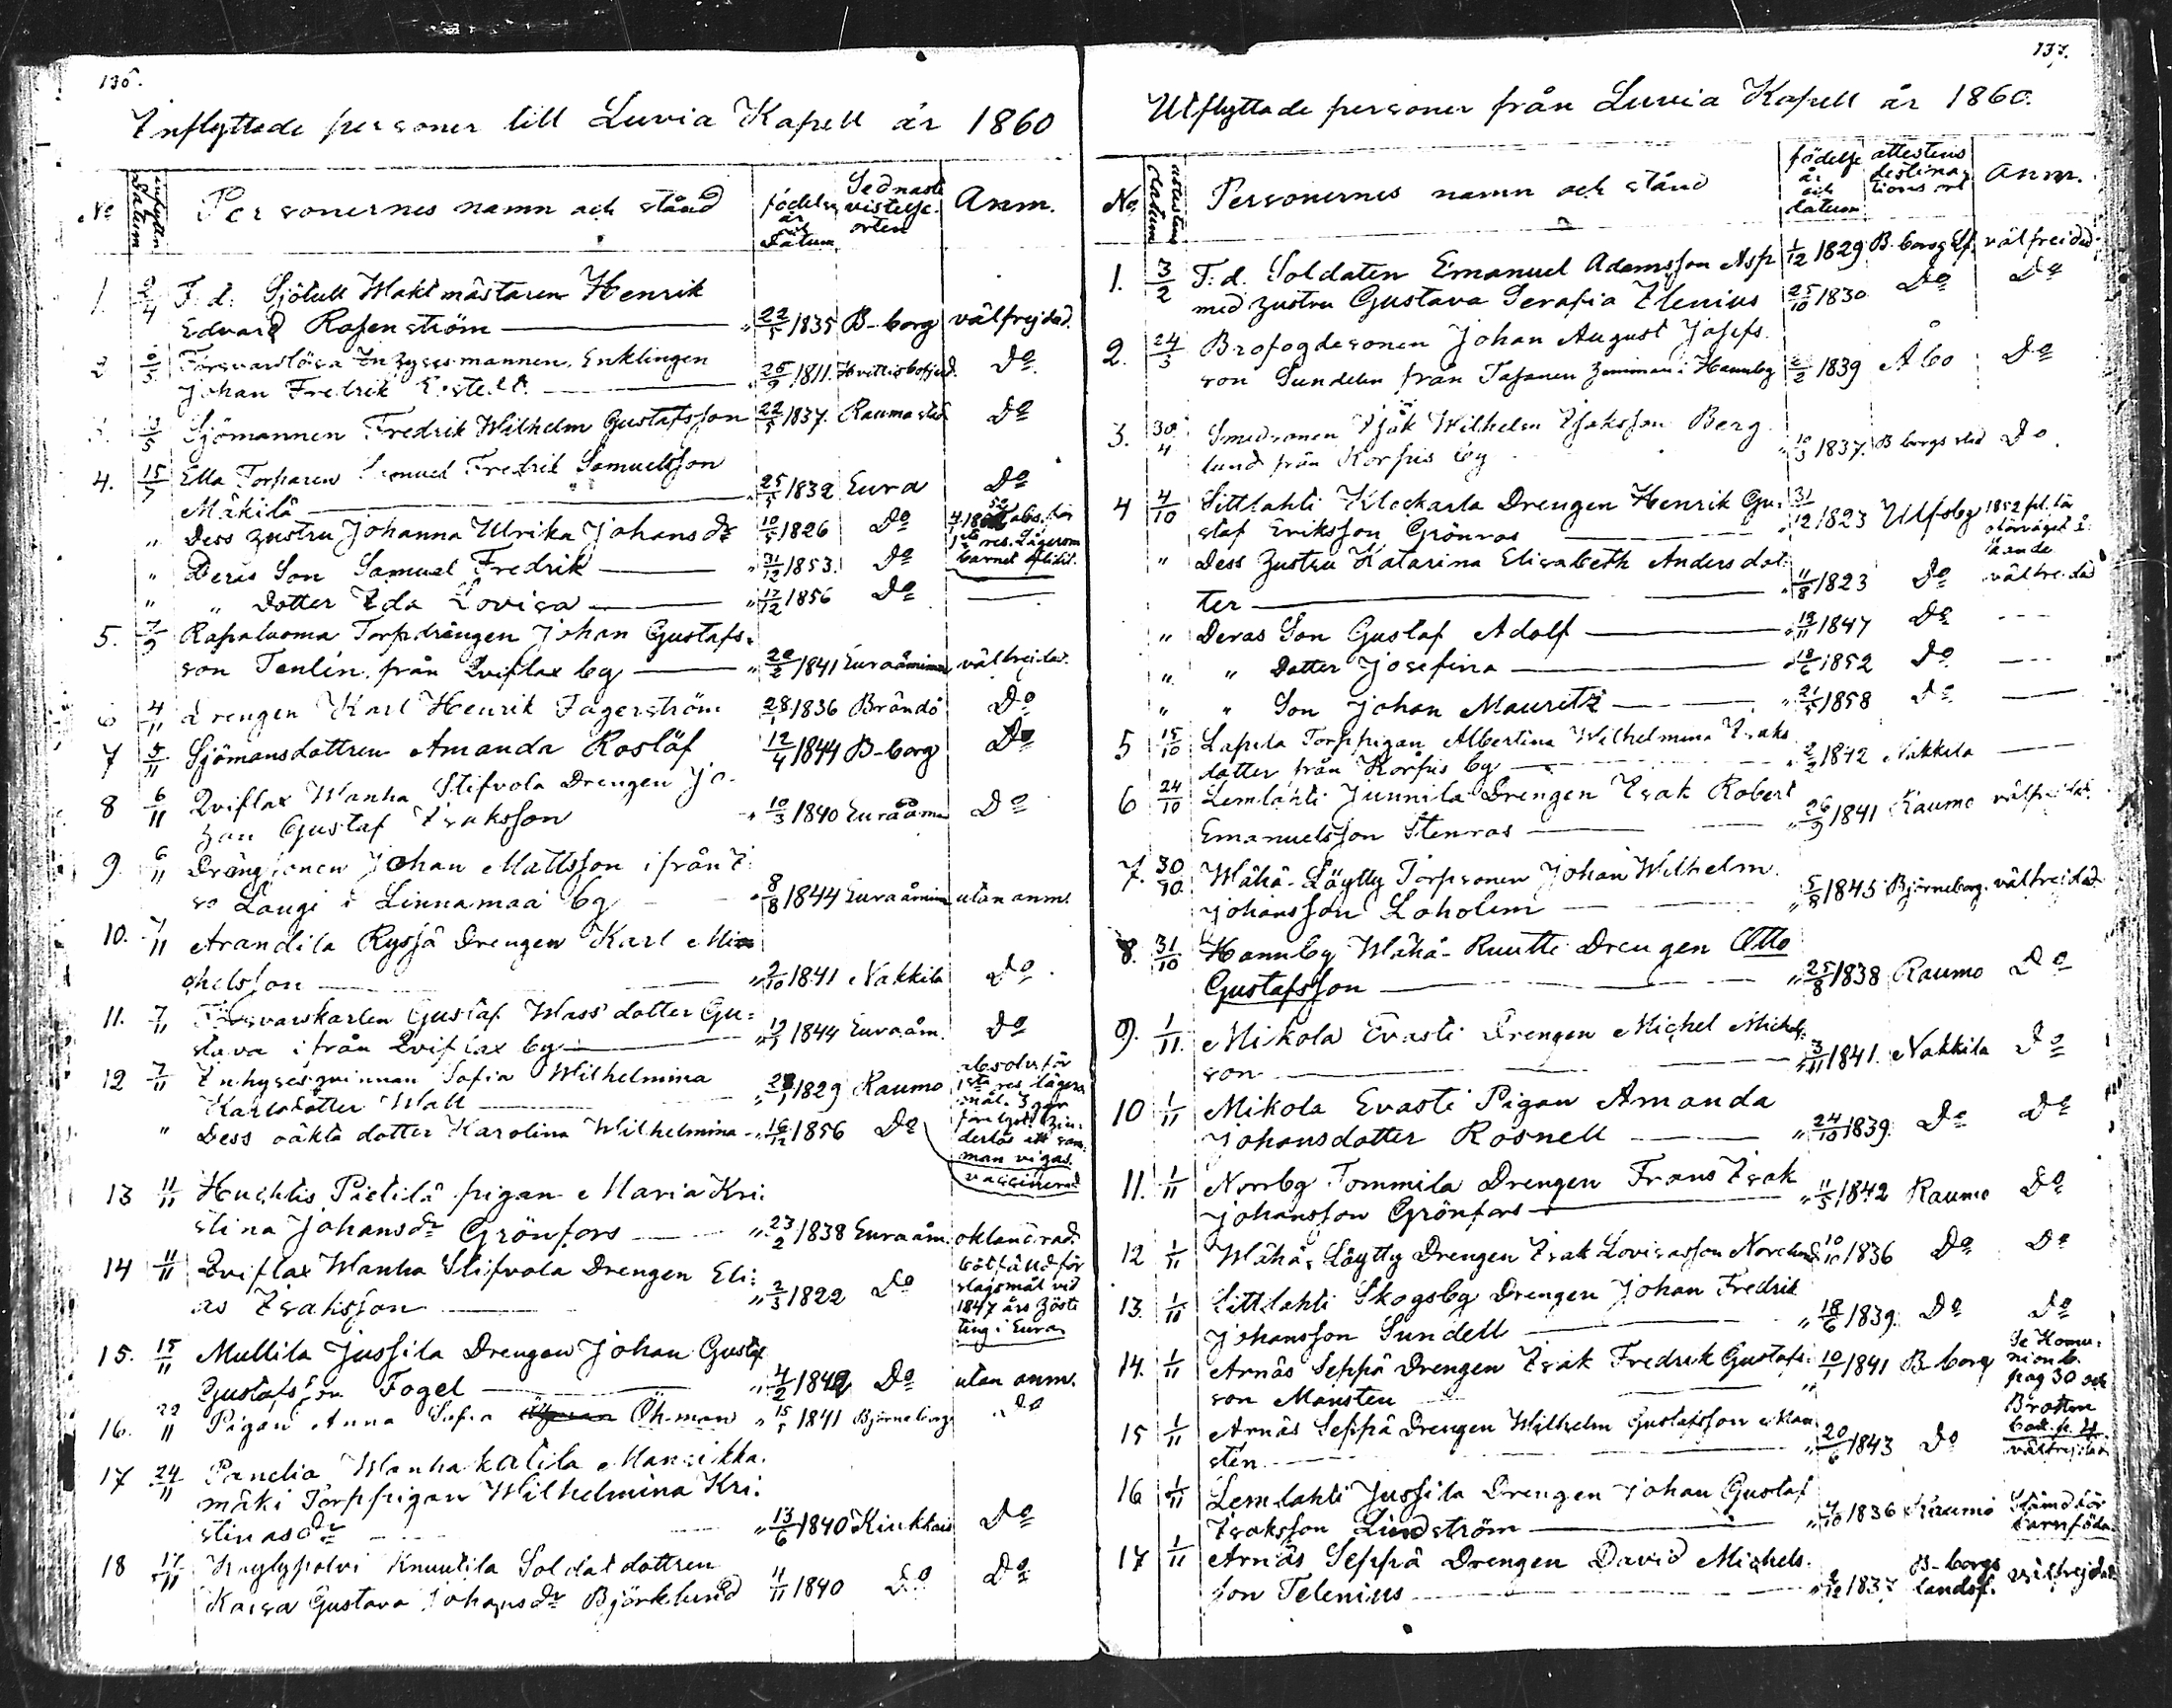 136.
Inflyttade personer till Luvia Kapell år 1860
No
inflyttn datum
Personernes namn och stånd
födelse år och datum
Sednaste vistelse orten
Anm.
1. 2/4 F. d. Sjötull Waktmästaren Henrik
Edvard Rosenström " 22/5 1835 B-borg välfrejdad.
2 Försvarslösa Inhysesmannen, Enklingen
Johan Fredrik 26/9 1811. Do
Sjömannen Fredrik Wilhelm Gustafsson 22/5 1837. Raumo stad Do
4. 15/7 Ella Torparen Samuel Fredrik Samuelsson
Mäkilä 25/7 1832 Eura Do
" Dess hustru Johanna Ulrika Johansdr 10/5 1826 Do abs. för 1sta res. Lägersm barnet aflidit.
" Deras Son Samuel Fredrik " 31/12 1853. Do
" " Dotter Ida Lovisa " 17/12 1856 Do
5. 7/9 Rapaluoma Torpdrängen Johan Gustafs-
son Tenlén från Qviflax by " 20/2 1841 Euraåminne välfrejdad.
6 4/11 Drengen Karl Henrik Fagerström 28/1 1836 Brändö Do
7 5/11 Sjömansdottren Amanda Roslöf 12/4 1844 B-borg Do
8 6/11 Qviflax Wanha Stifvola Drengen Jo-
han Gustaf Isaksson " 10/3 1840 Euraåmin Do
9. 6/11 Drängsonen Johan Mattsson ifrån I-
so Laugi i Linnamaa by " 8/8 1844 Euraåmin utan anm.
10. 7/11 Arandila Ryssä Drengen Karl Mi-
chelsson " 2/10 1841 Nakkila Do.
11. 7/11 Försvarskarlen Gustaf Wass' dotter Gu-
stava ifrån Qviflax by " 1844 Euraåm. Do
12 7/11 Inhysesqvinnan Sofia Wilhelmina
Karlsdotter Wall " 1829 Raumo absolv. för 1sta res. lägers mål. 3 ggr
" Dess oäkta dotter Karolina Wilhelmina " 16/12 1856 Do man vigas. vaccinerad
13 11/11 Huchtis Pietilä pigan Maria Kri-
stina Johansdr Grönfors " 23/2 1838 Euraåm. oklandrad
14 11/11 Qviflax Wanha Stifvola Drengen Eli-
as Isaksson " 2/3 1822 Do botfälld för slagsmål vid 1847 års Höste ting i Eura.
15. 15/11 Mullila Jussila Drengen Johan Gustaf
Gustafsson Fogel " 4/2 1842 Do utan anm.
16. 22/11 Pigan Anna Sofia Öhman " 15/5 1841 Björneborg Do
17 24/11 Panelia Wanhakatila Mansikka-
mäki Torppigan Wilhelmina Kri-
stinasdr " 13/6 1840 Kiukais Do
18 17/11 Knuutila Soldatdottren
Kaisa Gustava Johansdr Björklund 4/11 1840 Do Do
137.
Utflyttade personer från Luvia Kapell år 1860.
No
attestens datum
Personernes namn och stånd
födelse år och datum
attestens destina- tions ort
Anm.
1. 3/2 F. d. Soldaten Emanuel Adamsson Asp 1/12 1829 B-borgs Lf. välfreidad.
med hustru Gustava Serafia Ilenius 25/10 1830 Do Do
2. 24/3 Brofogdesonen Johan August Josefs-
son Sundelin från i Hannby 1839 Åbo Do
3. 30/4 Smedsonen Isak Wilhelm Isaksson Berg-
lund från Korpis by " 10/3 1837. B borgs stad Do.
4 4/10 Sittlahti Klockarla Drengen Henrik Gu-
staf Eriksson Grönroos 31/12 1823 Ulfsby 1852
" Dess hustru Katarina Elisabeth Andersdot-
ter " 11/8 1823 Do välfreidad
" Deras Son Gustaf Adolf " 19/11 1847 Do
" " Dotter Josefina " 18/6 1852 Do
" " Son Johan Mauritz " 21/5 1858 Do
5 15/10 Lapila Torppigan Albertina Wilhelmina Isaks-
dotter från Korpis by " 2/2 1842 Nakkila
6 24/10 Lemlahti Junnila Drengen Isak Robert
Emanuelsson Stenroos " 26/9 1841 Raumo välfreidad.
7. 30/10 Wähä-Löytty Torpsonen Johan Wilhelm
Johansson Loholm " 5/8 1845 Björneborg. välfreidad
8. 31/10 Hannby Wähä-Ruutti Drengen Otto
Gustafsson " 25/8 1838 Raumo Do
9. 1/11 Mikola Evasti Drengen Michel Michels-
son " 3/11 1841. Nakkila Do
10 1/11 Mikola Evasti Pigan Amanda
Johansdotter Rosnell " 24/10 1839. Do Do
11. 1/11 Norrby Tommila Drengen Frans Isak
Johansson Grönfors " 11/5 1842 Raumo Do
12 1/11 Wähä-Löytty Drengen Isak Lovisasson Norrlund 10/10 1836 Do Do
13. 1/11 Littlahti Skogsby Drengen Johan Fredrik
Johansson Sundell " 18/6 1839. Do Do
14. 1/11 Arnäs Seppä Drengen Isak Fredrik Gustafs-
son Mansten " 10/1 1841 B-borg Se Kommu- nionb. pag 30 och Brottm
15 1/11 Arnäs Seppä Drengen Wilhelm Gustafsson Man-
sten " 20/6 1843 Do välfrejdad
16 1/11 Lemlahti Jussila Drengen Johan Gustaf
Isaksson Lindström " 4/10 1836 Raumo
17 1/11 Arnäs Seppä Drengen David Michels-
son Telenius " 1837 B-borgs landsf. välfrejdad